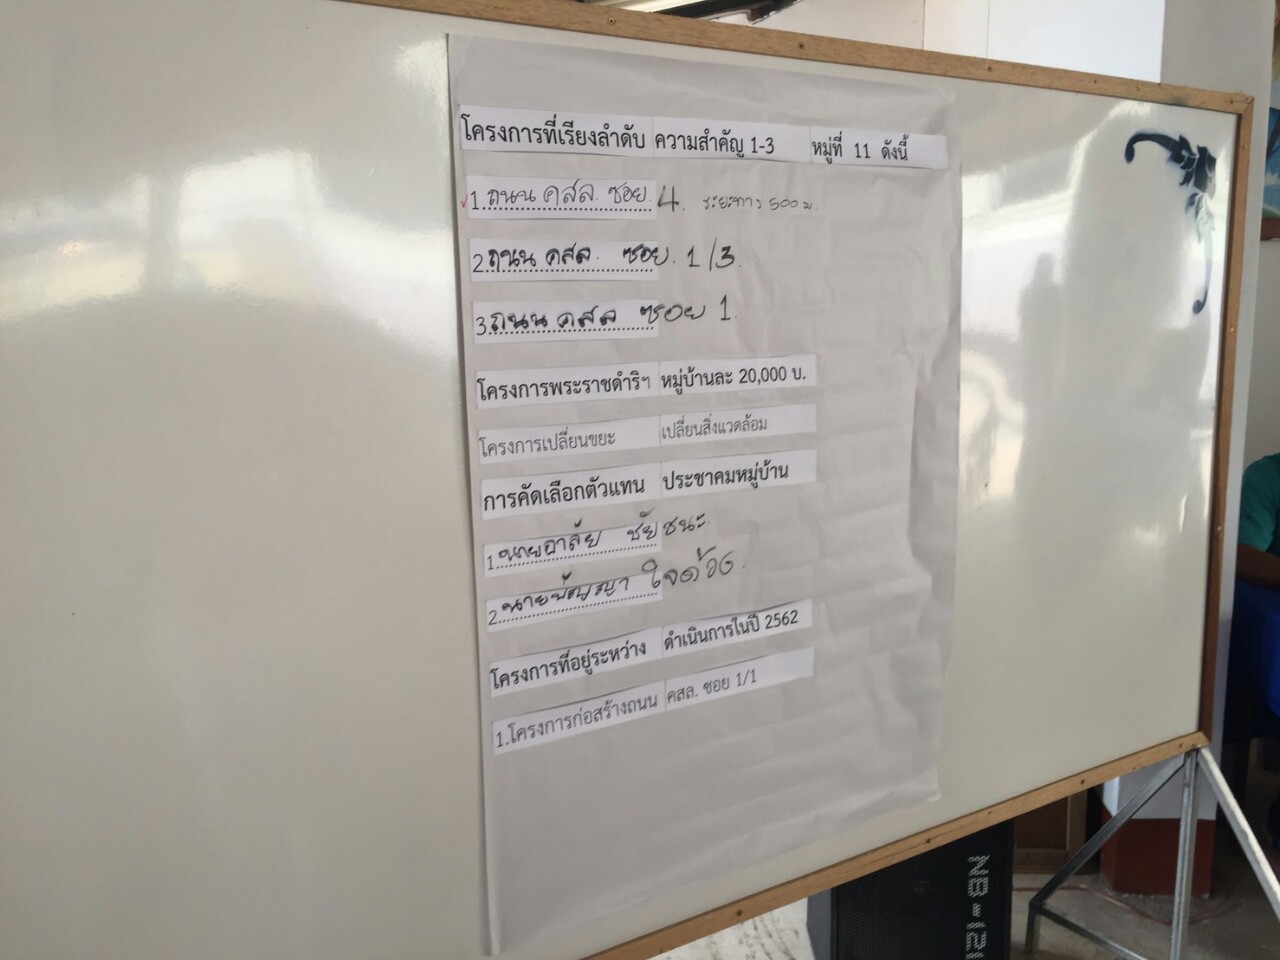 โครงการที่เรียงลำดับ ความสำคัญ 1-3 หมู่ที่ 11 ดังนี้
1. ถนน คสล. ซอย 4. ระยะทาง 500 ม.
2. ถนน คสล. ซอย. 1/3.
3. ถนน คสล ซอย 1.
โครงการพระราชดำริฯ หมู่บ้านละ 20,000 บ.
โครงการเปลี่ยนขยะ เปลี่ยนสิ่งแวดล้อม
การคัดเลือกตัวแทน ประชาคมหมู่บ้าน
1. นายอาลัย ชัยชนะ.
2. นายปัญญา ใจด้วง.
โครงการที่อยู่ระหว่าง ดำเนินการในปี 2562
1.โครงการก่อสร้างถนน คสล. ซอย 1/1